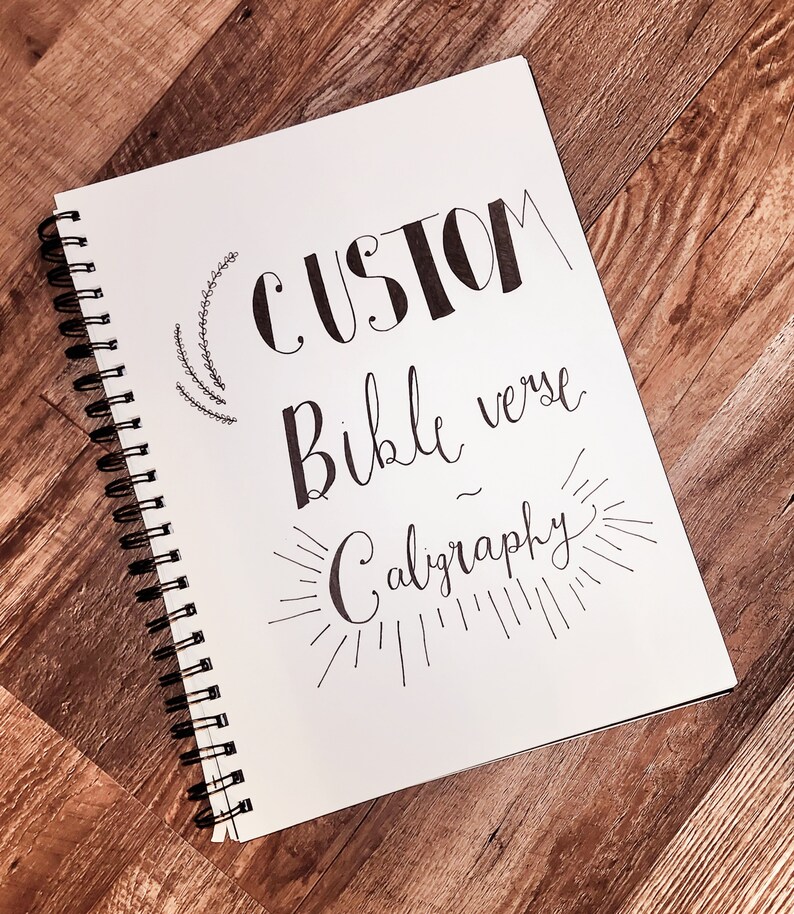 CUSTOM
Bible verse
~
Caligraphy